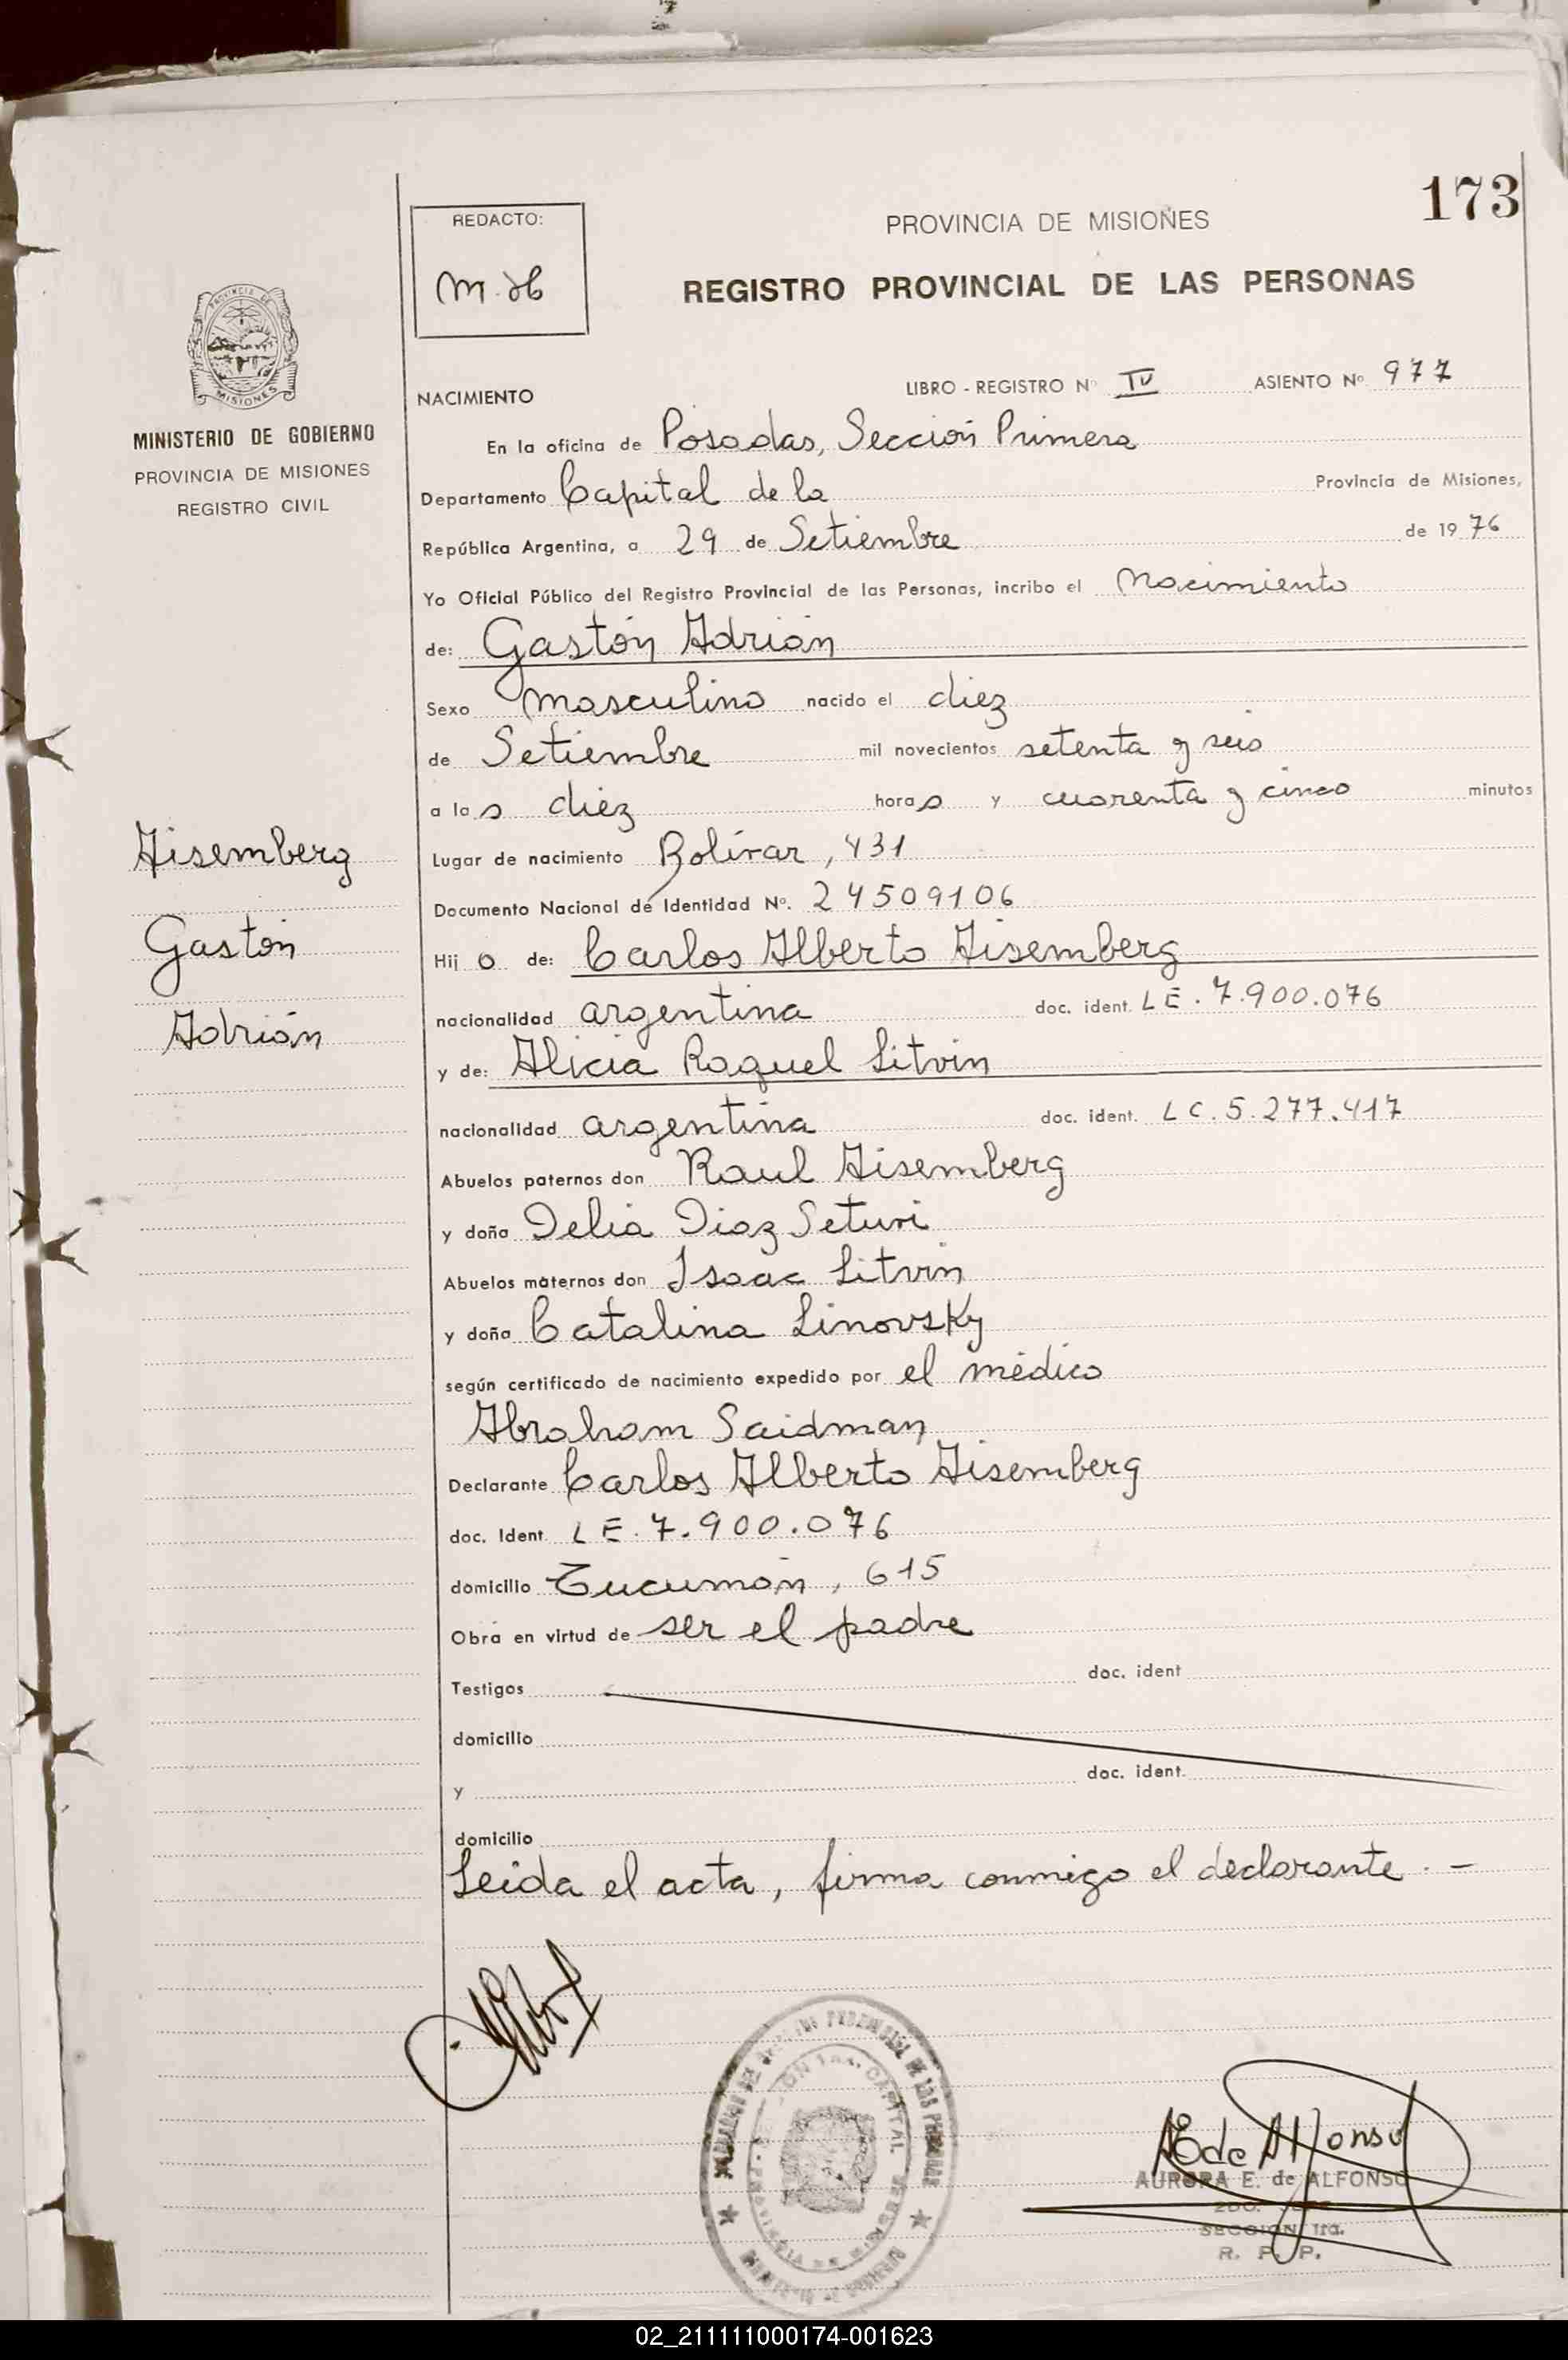 173
REDACTO:
PROVINCIA DE MISIONES
REGISTRO PROVINCIAL DE LAS PERSONAS
MISIONES
MINISTERIO DE GOBIERNO
PROVINCIA DE MISIONES
REGISTRO CIVIL
NACIMIENTO LIBRO - REGISTRO Nº IV ASIENTO Nº 977
En la oficina de Posadas, Sección Primera
Departamento Capital de la Provincia de Misiones,
República Argentina, a 29 de Setiembre de 1976
Yo Oficial Público del Registro Provincial de las Personas, incribo el Nacimiento
de: Gastón Adrián
Sexo masculino nacido el diez
de Setiembre mil novecientos setenta y seis
a las diez horas y cuarenta y cinco minutos
Aisemberg
Lugar de nacimiento Bolívar, 431
Documento Nacional de Identidad Nº. 24509106
Gastón
Hijo de: Carlos Alberto Aisemberg
nacionalidad argentina doc. ident. LE. 7.900.076
Adrián
y de: Alicia Raquel Litvin
nacionalidad argentina doc. ident. LC. 5.277.417
Abuelos paternos don Raul Aisemberg
y doña Delia Diaz Seturi
Abuelos maternos don Isaac Litvin
y doña Catalina Linovsky
según certificado de nacimiento expedido por el médico
Abraham Saidman
Declarante Carlos Alberto Aisemberg
doc. Ident. LE. 7.900.076
domicilio Tucumán, 615
Obra en virtud de ser el padre
Testigos doc. ident
domicilio
y doc. ident.
domicilio
Leída el acta, firma conmigo el declarante. -
AEde Alfonso
AURORA E. de ALFONSO
SECCION 1ra.
R. P. P.
02_211111000174-001623